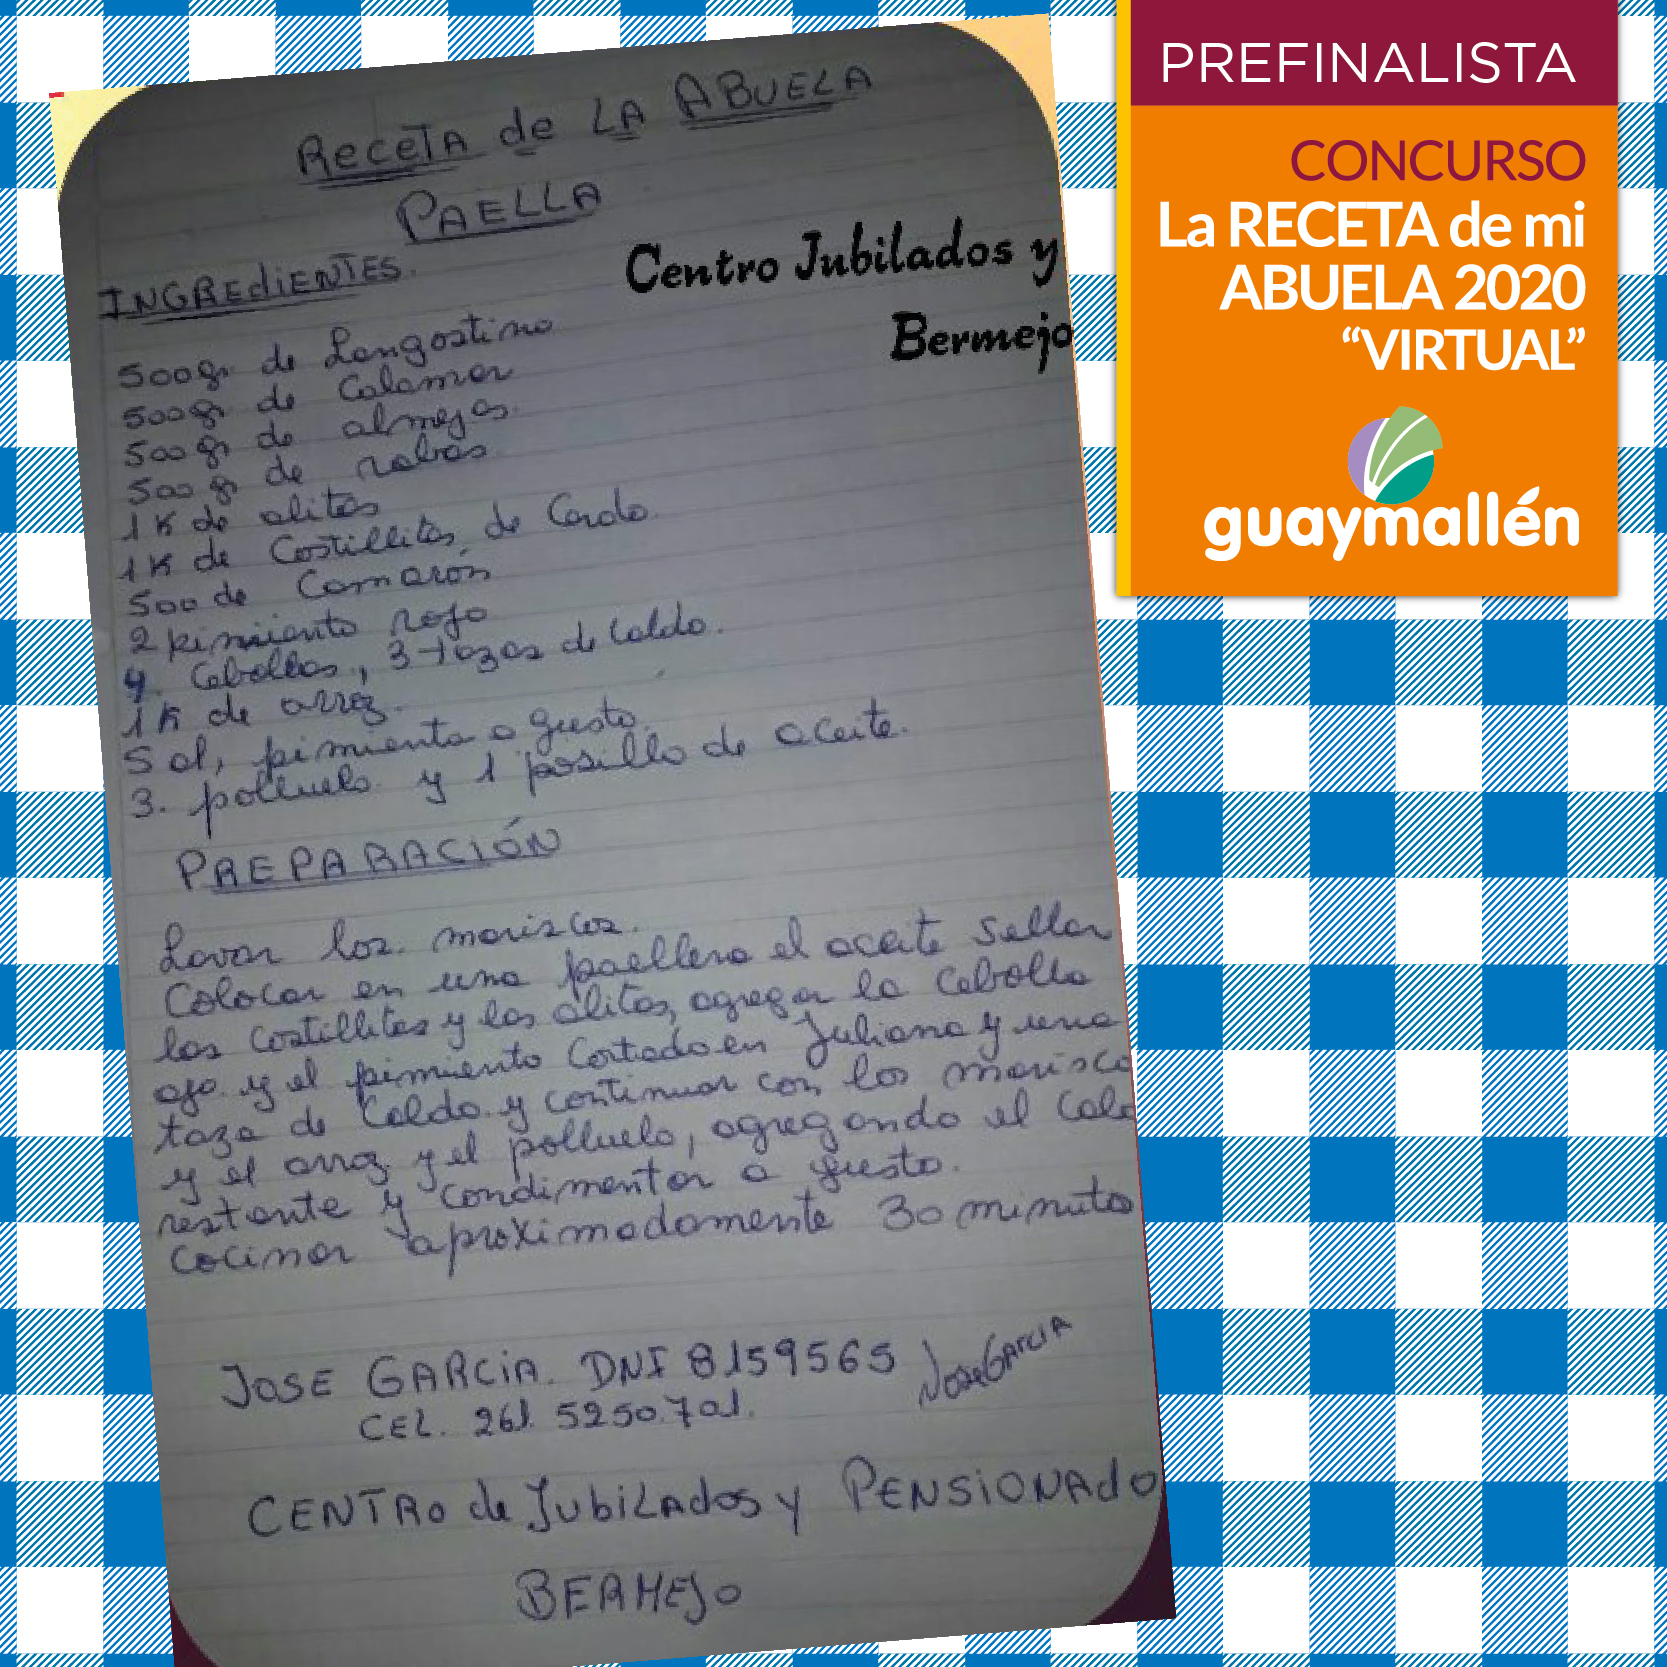 Receta de LA ABUELA
PAELLA
Centro Jubilados y
Bermejo
INGREDIENTES.
500gr de Langostino
500gr de Calamar
500 gr de almejas.
500 gr de rabas.
1K de alitas
1K de Costillitas de Cerdo.
500 de Camarón
2 pimiento rojo
4. Cebollas, 3 tazas de Caldo.
1K de arroz.
Sal, pimienta a gusto.
3. polluelo y 1 posillo de aceite.
PREPARACIÓN
Lavar los mariscos.
Colocar en una paellera el aceite sellar
las Costillitas y las alitas, agregar la Cebolla
ajo y el pimiento Cortado en Juliana y una
taza de Caldo y continuar con los marisco
y el arroz y el polluelo, agregando el Cald
restante y Condimentar a gusto.
Cocinar aproximadamente 30 minutos
JOSE GARCIA. DNI 8159565 Jose GARCIA
CEL. 261 5250701.
CENTRO de JubiLAdos y PENSIONAdO
BERMEJO
PREFINALISTA
CONCURSO
La RECETA de mi
ABUELA 2020
“VIRTUAL”
guaymallén